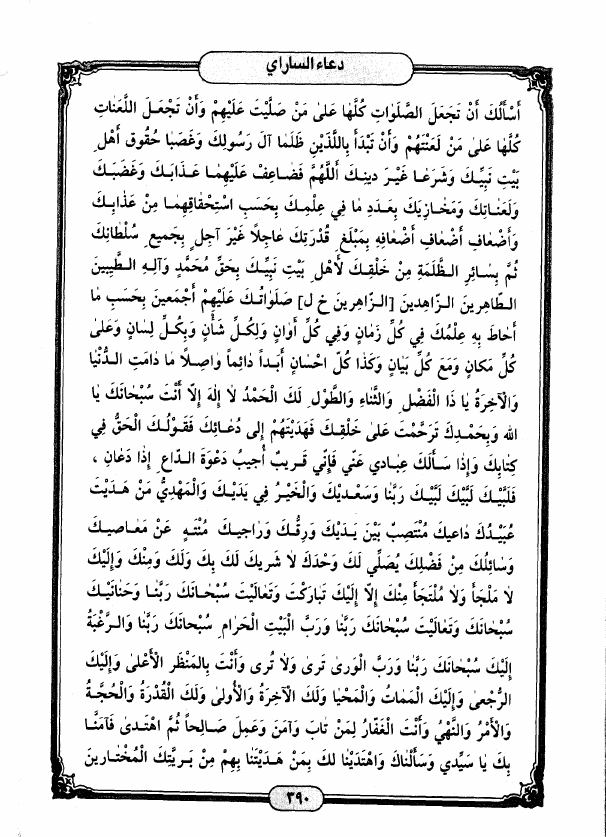 دعاء الساراي
أَسْأَلُكَ أَنْ تَجْعَلَ الصَّلَوٰاتِ كُلَّهٰا عَلىٰ مَنْ صَلَّيْتَ عَلَيْهِمْ وَأَنْ تَجْعَلَ اللَّعَنٰاتِ
كُلَّهٰا عَلىٰ مَنْ لَعَنْتَهُمْ وَأَنْ تَبْدَأَ بِاللَّذَيْنِ ظَلَمٰا آلَ رَسُولِكَ وَغَصَبٰا حُقُوقَ أَهْلِ
بَيْتِ نَبِيِّكَ وَشَرَعٰا غَيْرَ دينِكَ أَللَّهُمَّ فَضٰاعِفْ عَلَيْهِمٰا عَذٰابَكَ وَغَضَبَكَ
وَلَعَنٰاتِكَ وَمَخٰازِيَكَ بِعَدَدِ مٰا في عِلْمِكَ بِحَسَبِ اسْتِحْقٰاقِهِمٰا مِنْ عَدٰابِكَ
وَأَضْعٰافِ أَضْعٰافِ أَضْعٰافِهِ بِمَبْلَغِ قُدْرَتِكَ عٰاجِلًا غَيْرَ آجِلٍ بِجَميعِ سُلْطٰانِكَ
ثُمَّ بِسٰائِرِ الظَّلَمَةِ مِنْ خَلْقِكَ لِأَهْلِ بَيْتِ نَبِيِّكَ بِحَقِّ مُحَمَّدٍ وَآلِهِ الطَّيِّبينَ
الطّٰاهِرينَ الزّٰاهِدينَ [الزّٰاهِرينَ خ ل] صَلَوٰاتُكَ عَلَيْهِمْ أَجْمَعينَ بِحَسَبِ مٰا
أَحٰاطَ بِهِ عِلْمُكَ في كُلِّ زَمٰانٍ وَفي كُلِّ أَوٰانٍ وَلِكُلِّ شَأْنٍ وَبِكُلِّ لِسٰانٍ وَعَلىٰ
كُلِّ مَكٰانٍ وَمَعَ كُلِّ بَيٰانٍ وَكَذٰا كُلِّ احْسٰانٍ أَبَداً دٰائِماً وٰاصِلًا مٰا دٰامَتِ الدُّنْيٰا
وَالْآخِرَةُ يٰا ذَا الْفَضْلِ وَالثَّنٰاءِ وَالطَّوْلِ لَكَ الْحَمْدُ لٰا إِلٰهَ إِلّٰا أَنْتَ سُبْحٰانَكَ يٰا
الله وَبِحَمْدِكَ تَرَحَّمْتَ عَلىٰ خَلْقِكَ فَهَدَيْتَهُمْ إِلى دُعٰائِكَ فَقَوْلُكَ الْحَقُّ في
كِتٰابِكَ وَإِذٰا سَأَلَكَ عِبٰادي عَنّي فَإِنّي قَريبٌ أُجيبُ دَعْوَةَ الدّٰاعِ إِذٰا دَعٰانِ ،
فَلَبَّيْكَ لَبَّيْكَ لَبَّيْكَ رَبَّنٰا وَسَعْدَيْكَ وَالْخَيْرُ في يَدَيْكَ وَالْمَهْدِيُّ مَنْ هَدَيْتَ
عُبَيْدُكَ دٰاعيكَ مُنْتَصِبٌ بَيْنَ يَدَيْكَ وَرِقُّكَ وَرٰاجيكَ مُنْتَهٍ عَنْ مَعٰاصيكَ
وَسٰائِلُكَ مِنْ فَضْلِكَ يُصَلّي لَكَ وَحْدَكَ لٰا شَريكَ لَكَ بِكَ وَلَكَ وَمِنْكَ وَإِلَيْكَ
لٰا مَلْجَأَ وَلٰا مُلْتَجَأَ مِنْكَ إِلّٰا إِلَيْكَ تَبٰارَكْتَ وَتَعٰالَيْتَ سُبْحٰانَكَ رَبَّنٰا وَحَنٰانَيْكَ
سُبْحٰانَكَ وَتَعٰالَيْتَ سُبْحٰانَكَ رَبَّنٰا وَرَبَّ الْبَيْتِ الْحَرٰامِ سُبْحٰانَكَ رَبَّنٰا وَالرَّغْبَةُ
إِلَيْكَ سُبْحٰانَكَ رَبَّنٰا وَرَبَّ الْوَرىٰ تَرىٰ وَلٰا تُرىٰ وَأَنْتَ بِالمَنْظَرِ الْأَعْلىٰ وَإِلَيْكَ
الرُّجْعىٰ وَإِلَيْكَ الْمَمٰاتُ وَالْمَحْيٰا وَلَكَ الْآخِرَةُ وَالْأُولىٰ وَلَكَ الْقُدْرَةُ وَالْحُجَّةُ
وَالْأَمْرُ وَالنَّهْيُ وَأَنْتَ الْغَفّٰارُ لِمَنْ تٰابَ وَآمَنَ وَعَمِلَ صٰالِحاً ثُمَّ اهْتَدىٰ فَآمَنّٰا
بِكَ يٰا سَيِّدي وَسَأَلْنٰاكَ وَاهْتَدَيْنٰا لَكَ بِمَنْ هَدَيْتَنٰا بِهِمْ مِنْ بَرِيَّتِكَ الْمُخْتٰارينَ
٣٩٠